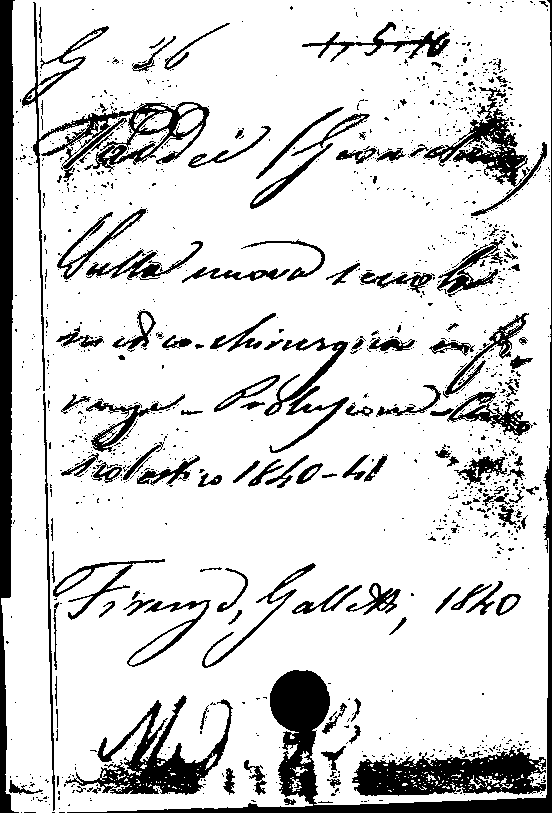 G 26 1,5,16
Taddei (Gioacchino)
Sulla nuova scuola
medico-chirurgica in Fi-
renze - Prolusione - Anno
scolastico 1840-41
Firenze, Galletti, 1840
Med